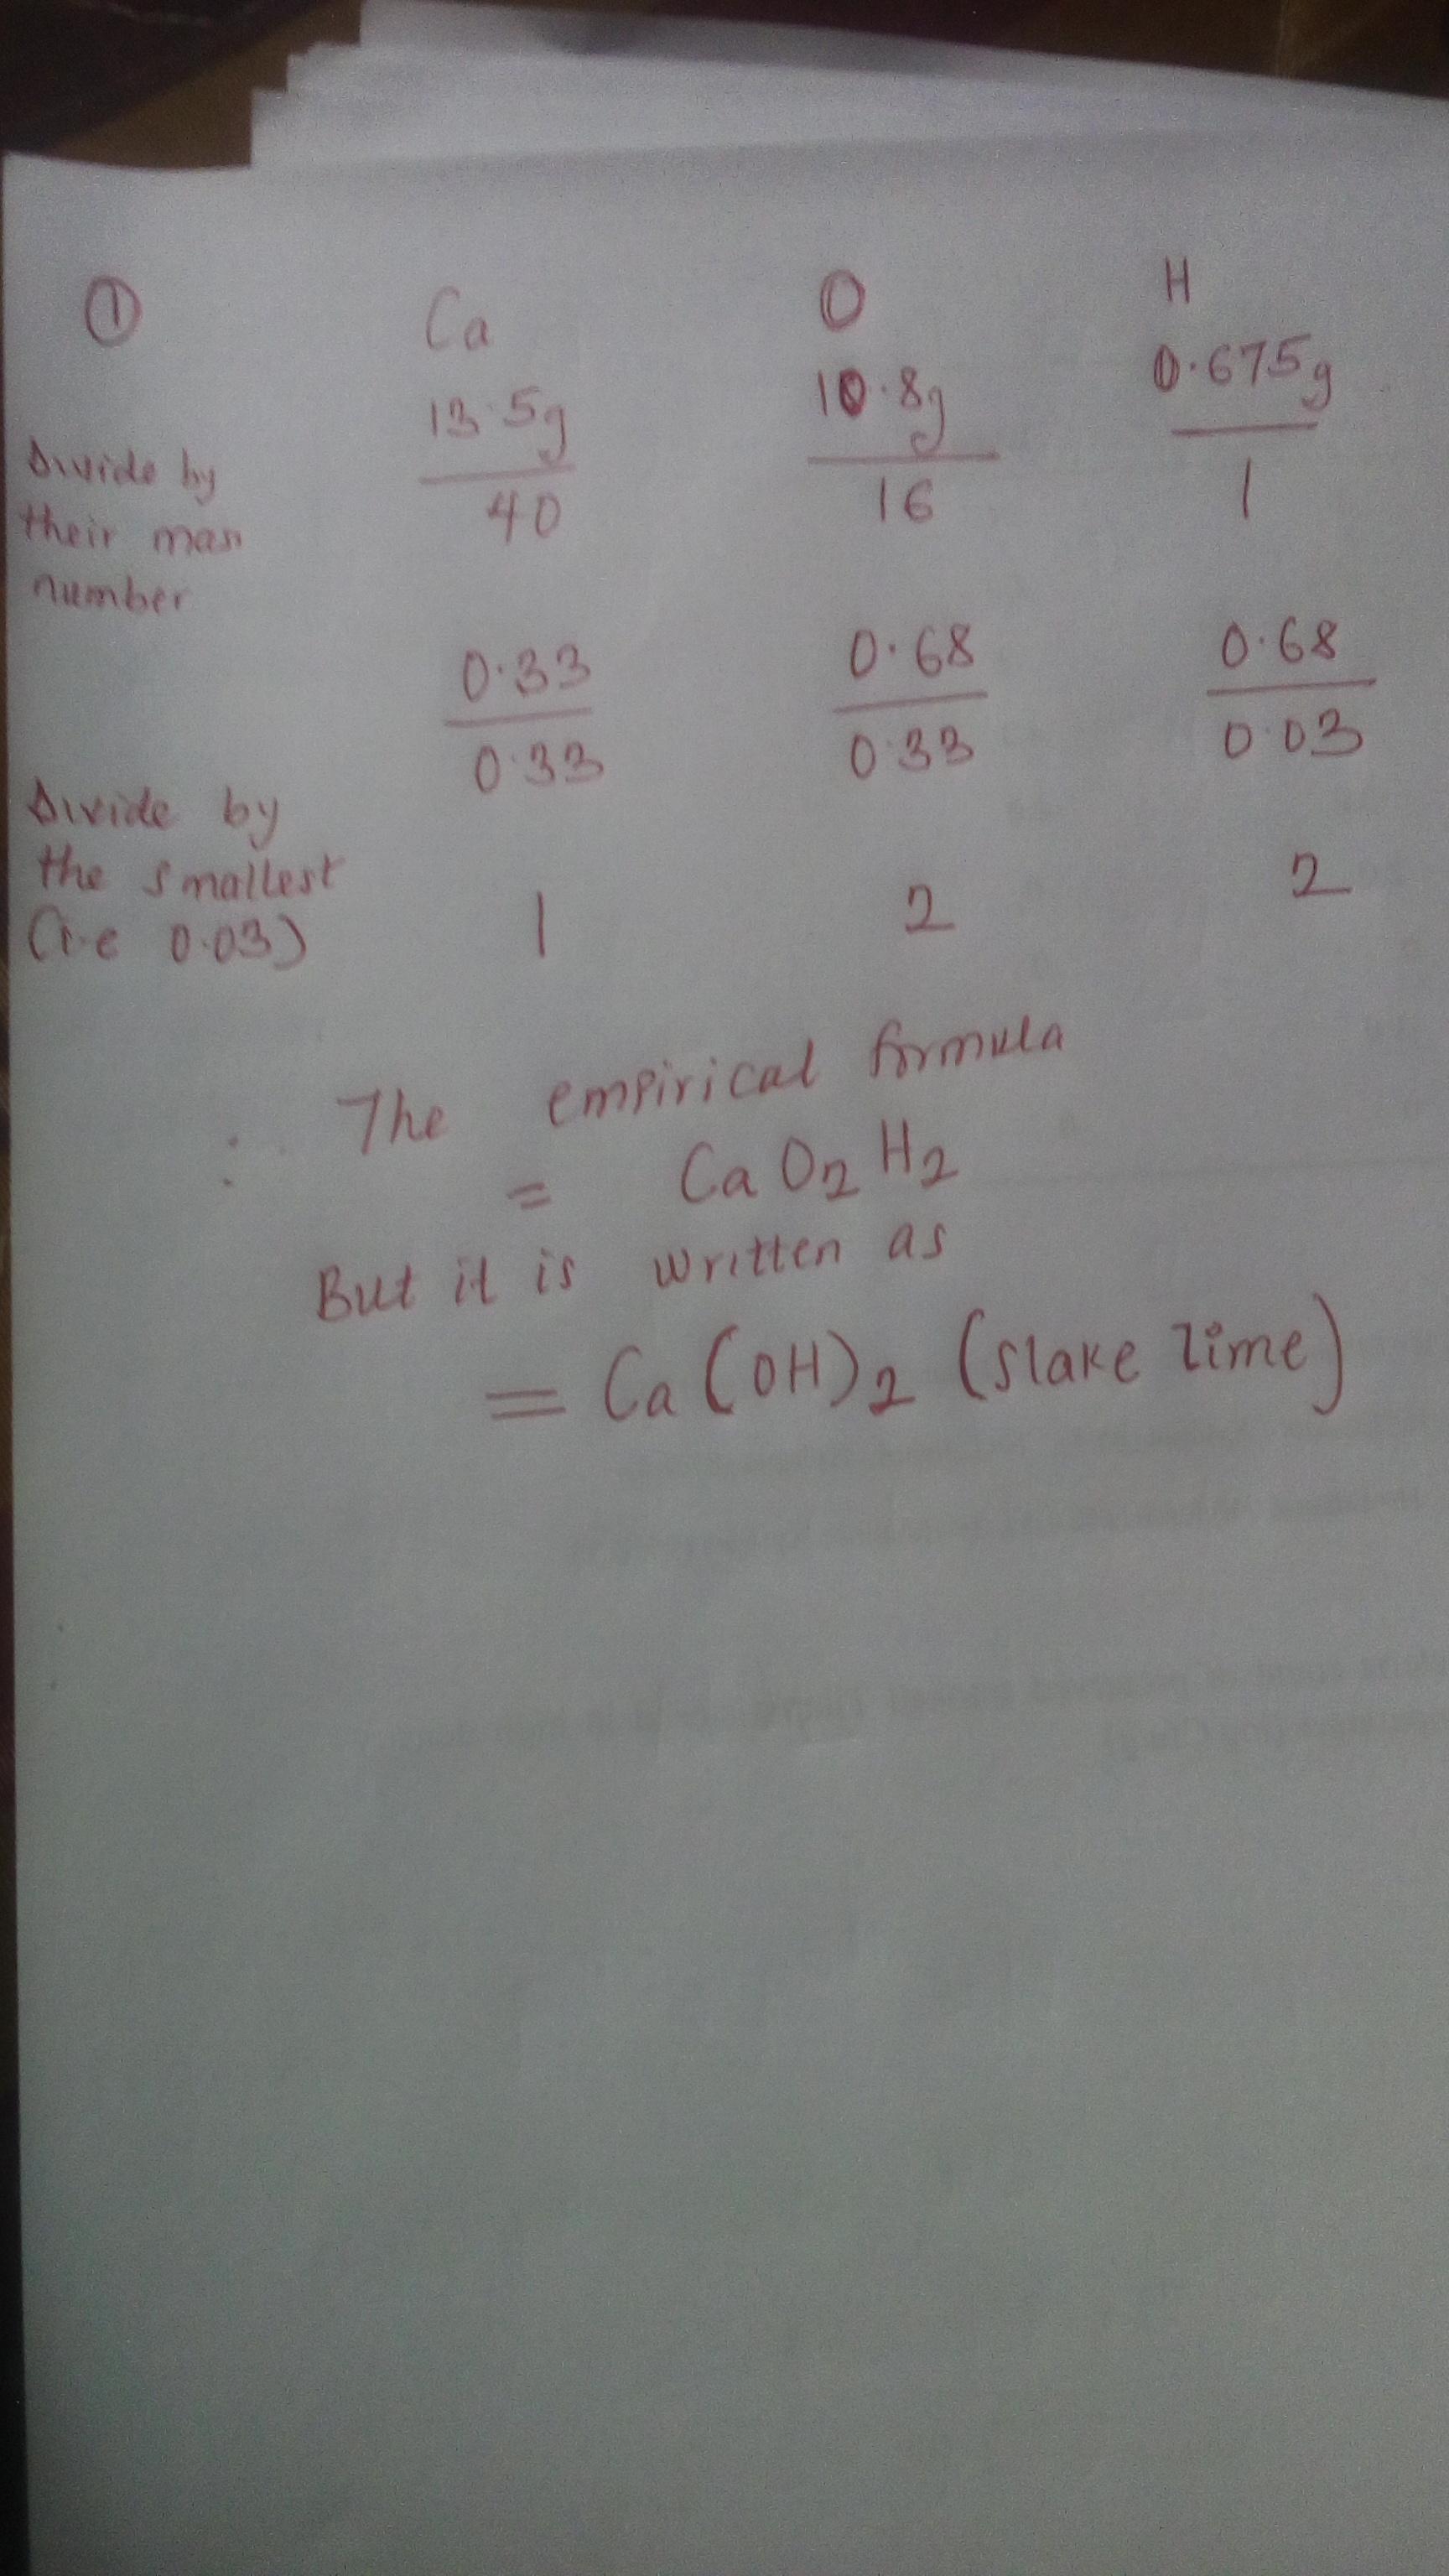 ① Ca O H
13.5g 10.8g 0.675g
Divide by their mass number 40 16 1
0.33 0.68 0.68
0.33 0.33 0.03
Divide by
the smallest
(i.e 0.03) 1 2 2
∴ The empirical formula
= CaO2H2
But it is written as
= Ca(OH)2 (slake lime)